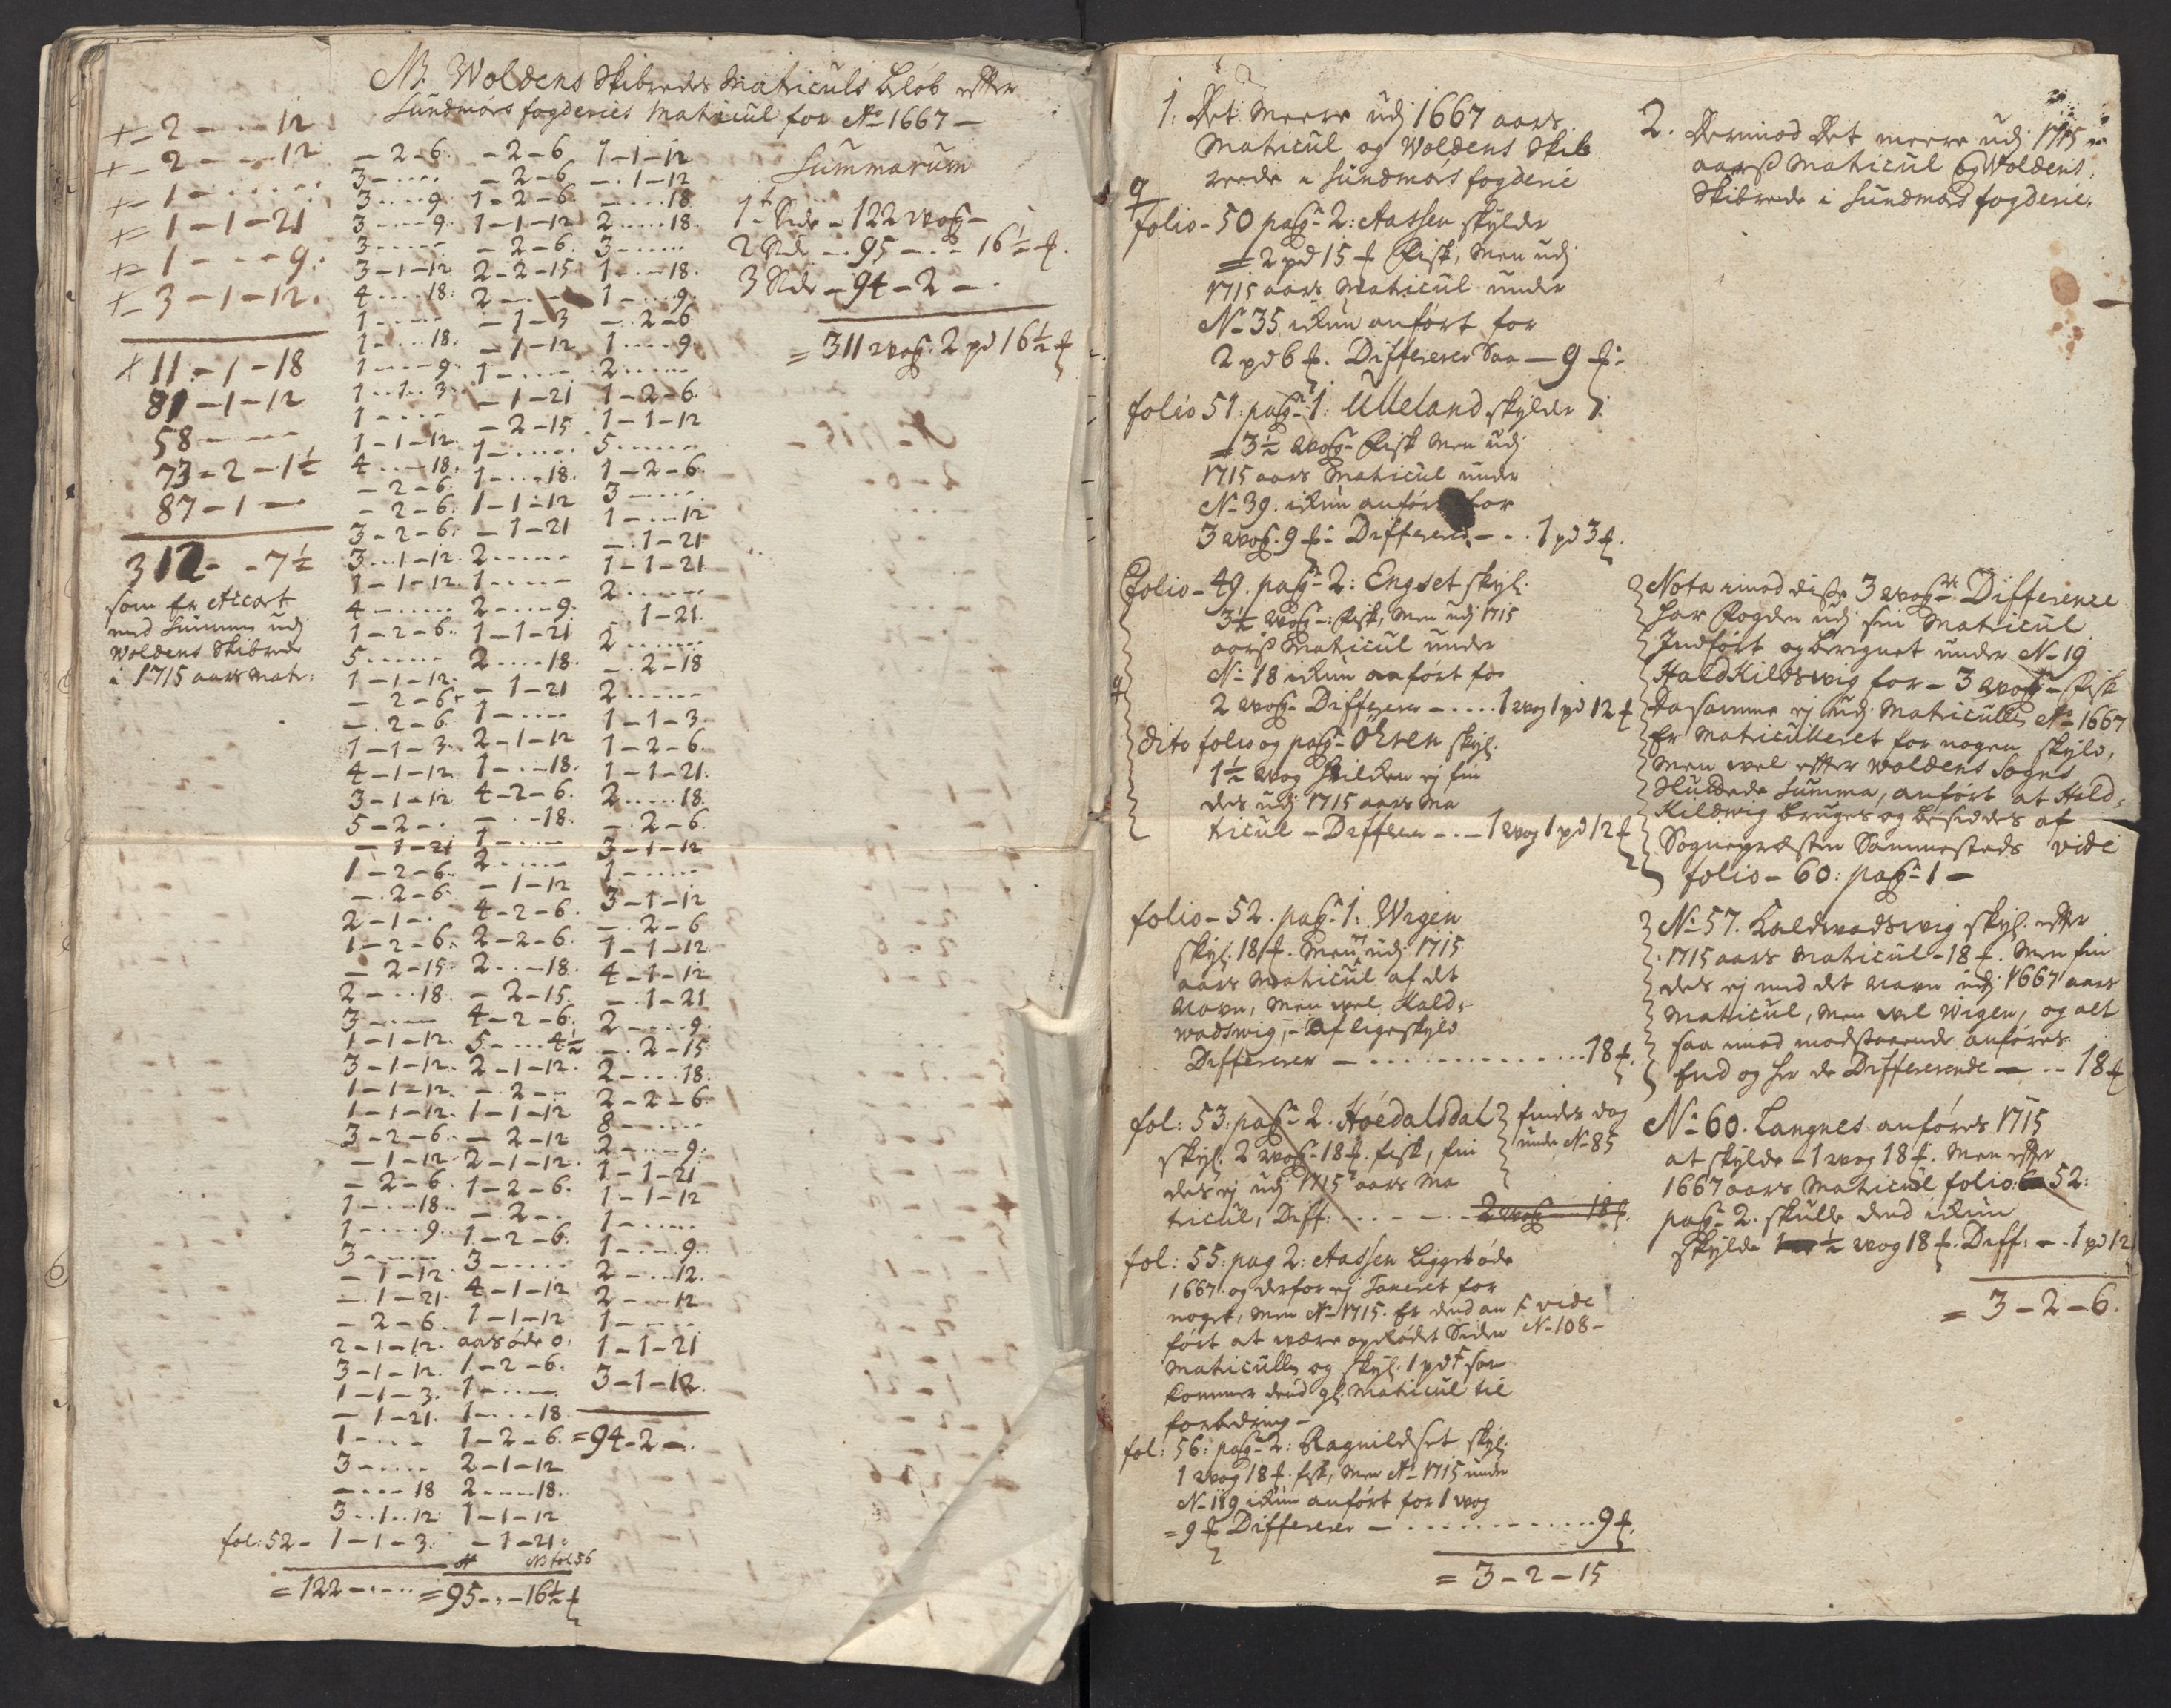 NB. Woldens Skibredes Matriculs beløb efter
Sundmørs fogderies Matricul for Ao 1667 —
+ – 2 – – – 12
+ – 2 – – – 12
+ – 1 – . . . . . .
+ – 1 – 1 – 21
+ – 1 – . . – 9.
+ – 3 – 1 – 12.
+ 11 – 1 – 18
81 – 1 – 12
58 – – – –
73 – 2 – 1½
87 – 1 –
312 – – 7½
som er Accort
med Summen udj
Woldens Skibrede
i 1715 aars Matr:
– 2 – 6.
3 – . . . .
3 . . . . 9.
3 . . . . 9.
3 – . . . .
3 – 1 – 12
4 . . . . 18.
1 – . . . .
1 – . . . 18.
1 – . . . 9.
1 . . 1 . . 3.
1 – . . .
1 – 1 – 12.
4 . . . . 18.
– 2 – 6.
– 2 – 6.
3 – 2 – 6.
3 . . . 1 – 12.
1 – 1 – 12.
4 – . . . . .
1 – 2 – 6.
5 . . . . . .
1 – 1 – 12.
– 2 – 6.
– . 2 – 6.
1 – 1 – 3.
4 – 1 – 12.
3 – 1 – 12
5 – 2 – .
– 1 – 21
1 – 2 – 6.
– . 2 – 6.
2 – 1 – .
1 – 2 – 6.
– 2 – 15.
2 – . . . 18.
3 – . . . –
1 – 1 – 12.
3 – 1 – 12.
1 – 1 – 12.
1 – 1 – 12.
3 – 2 – 6.
– 1 – 12.
– 2 – 6.
1 – . . . 18.
1 . . . . . 9.
3 – . . . –
– 1 – 12.
– . 1 – 21.
– 2 – 6.
2 – 1 – 12.
3 – 1 – 12.
1 – 1 – 3.
– 1 – 21.
1 – . . –
3 – . . . .
– . . . 18
3 . . 1 . . 12.
fol: 52 – 1 – 1 – 3.
= 122 – . . . .
– 2 – 6
– 2 – 6
1 – 2 – 6.
1 – 1 – 12
– 2 – 6.
2 – 2 – 15
2 – . . –
– 1 – 3
– 1 – 12
1 – . . . .
– 1 – 21
– 2 – 15
1 – . . . .
1 – . . . 18.
1 – 1 – 12
– 1 – 21
2 . . . . . –
1 – . . . –
2 – . . . 9.
1 – 1 – 21
2 . . . . 18.
– 1 – 21
1 – . . . –
2 – 1 – 12
1 – . . – 18.
4 – 2 – 6.
– . – 18.
1 – . . . .
2 – . . . –
– 1 – 12
4 – 2 – 6.
2 – 2 – 6.
2 . . – 18.
– 2 – 15.
4 – 2 – 6.
5 – . . . 4½
2 – 1 – 12.
– . 2 – –
1 – 1 – 12
– 2 – 12
2 – 1 – 12.
1 – 2 – 6.
– . 2 – .
1 – 2 – 6.
3 – . . . .
4 – 1 – 12
1 – 1 – 12
aars øde 0.
1 – 2 – 6.
1 – . . . –
1 – . . . 18
1 – 2 – 6.
2 – 1 – 12
2 . . . . 18.
1 – 1 – 12
– 1 – 21.
NB fol 56
= 95 – . – 16½ ₶
1 – 1 – 12
– . 1 – 12
– . . . . 18
2 . . . . . 18.
3 – . . . . .
1 – . . – 18.
1 – . . . . 9.
– . 2 – 6
1 . . . . 9
2 . . . . . –
1 – 2 – 6.
1 – 1 – 12
5 . . . . . . .
1 – 2 – 6.
3 – . . . .
1 – . . . 12
– . 1 – 21.
1 – 1 – 21.
2 . . . . . –
. 1 – 21.
2 . . . . . .
– . 2 – 18
2 – . . . .
1 – 1 – 3.
1 – 2 – 6.
1 – 1 – 21.
2 . . . . . 18.
– . 2 – 6.
3 – 1 – 12
1 – . . . .
3 – 1 – 12
– . 2 – 6
1 – 1 – 12.
4 – 1 – 12
– . 1 – 21
2 – . . . 9.
– . 2 – 15.
2 – . . . 18.
2 – 2 – 6.
8 – . . . –
2 – . . . 9.
1 – 1 – 21
1 – 1 – 12
1 – . . . .
1 – . . . 9.
2 – . . . 12.
2 – . . . 12
1 – . . . .
1 – 1 – 21
3 – 1 – 12.
= 94 – 2 – .
Summarum
1te Side – 122 wog –
2 Side – . 95 – . – 16½ ₶.
3 Side – 94 – 2 – .
= 311 wog. 2 pd 16½ ₶
1. Det Meere udj 1667 aars
Matricul og Woldens Skib
rede i Sundmørs fogderie
folio – 50 pag – 2: Aassen skylder
= 2 pd 15 ₶ Fisk, Men udj
1715 aars Matricul under
No 35 ikun anført for
2 pd 6 ₶. Differerer Saa — 9 ₶:
folio 51: pag – 1: Ulleland skylder
= 3½ wog – Fisk Men udj
1715 aars Matricul under
No 39. ikun anført for
3 wog. 9 ₶ – Differerer – . . 1 pd 3 ₶.
Folio – 49. pag – 2: Engset skyl.
3½ wog –: Fisk, Men udj 1715
aars Matricul under
No 18 ikun anført for
2 wog – Differerer – . . . . 1 wog 1 pd 12 ₶
dito folio og pag – Øhren skyl.
1½ wog hvilken ej fin
des udj 1715 aars Ma
tricul – Differerer – . – 1 wog 1 pd 12 ₶
folio – 52. pag – 1: Wigen
skyl. 18 ₶. Men udj 1715
aars Matricul af det
Navn, Men wel Kald=
wadswig, – af lige skyld
Differerer — . . . . . . . . . . 18 ₶.
fol: 53: pag – 2. Høedalsdal
skyl. 2 wog – 18 ₶. fisk, fin
des ej udj 1715 aars Ma
tricul, Diff: . . . – . – 2 wog – 18 ₶.
findes dog
under No 85
fol: 55: pag 2: Aassen Ligger øde
1667 og derfor ej Taxeret for
noget, Men Ao 1715. er dend an
ført at være opryddet Siden
Matricullen og skyl. 1 pd som
kommer dend gl. Matricul til
forbedring –
vide
No 108 –
fol: 56: pag – 2: Ragnildset skyl.
1 wog 18 ₶. fisk, Men Ao 1715 under
No 119 ikun anført for 1 wog
= 9 ₶ Differerer — . . . . . . . . . 9 ₶.
= 3 – 2 – 15
2. Derimod Det meere udj 1715
aars Matricul og Woldens
Skibrede i Sundmørs fogderie.
Nota imod disse 3 wog: Difference
har Fogden udj sin Matricul
Indført og beregnet under No 19
Hald Kilds wig for – 3 wog – Fisk
Da samme ej udj Matricullen Ao 1667
er Matriculleret for nogen skyld,
Men vel efter Woldens Sogns
Sluttede Summa, anført at Hald=
Kildwig bruges og besiddes af
Sognepresten Sammesteds vide
folio – 60: pag – 1 –
No 57. Kaldwadswig skyl. efter
1715 aars Matricul – 18 ₶. Men fin
des ej med det Navn udj 1667 aars
Matricul, Men wel Wigen, og alt
saa imod modstaaende anføres
End og her de Differerende — – 18 ₶
No 60. Langnes anføres 1715
at skylde – 1 wog 18 ₶. Men efter
1667 aars Matricul folio: 52:
pag – 2. skulle dend ikun
skylde ½ wog 18 ₶. Diff: – . 1 pd 12
= 3 – 2 – 6.